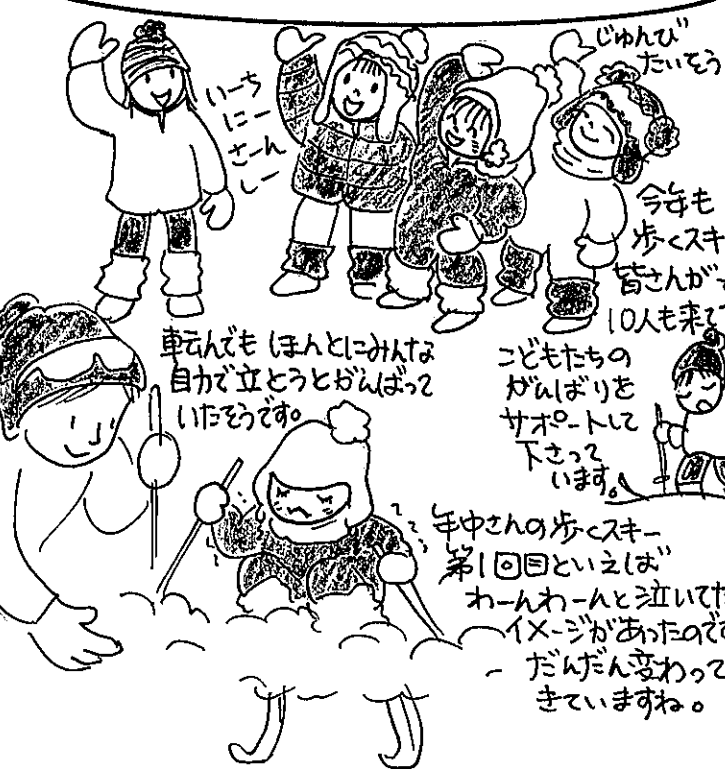 いーち
にー
さーん
しー
じゅんび
たいそう
今年も
歩くスキ
皆さんが
10人も来て
転んでも ほんとにみんな
自力で立とうとがんばって
いたそうです。
こどもたちの
がんばりを
サポートして
下さって
います。
年中さんの歩くスキー
第1回目といえば
わーんわーんと泣いてた
イメージがあったのです
だんだん変わって
きていますね。